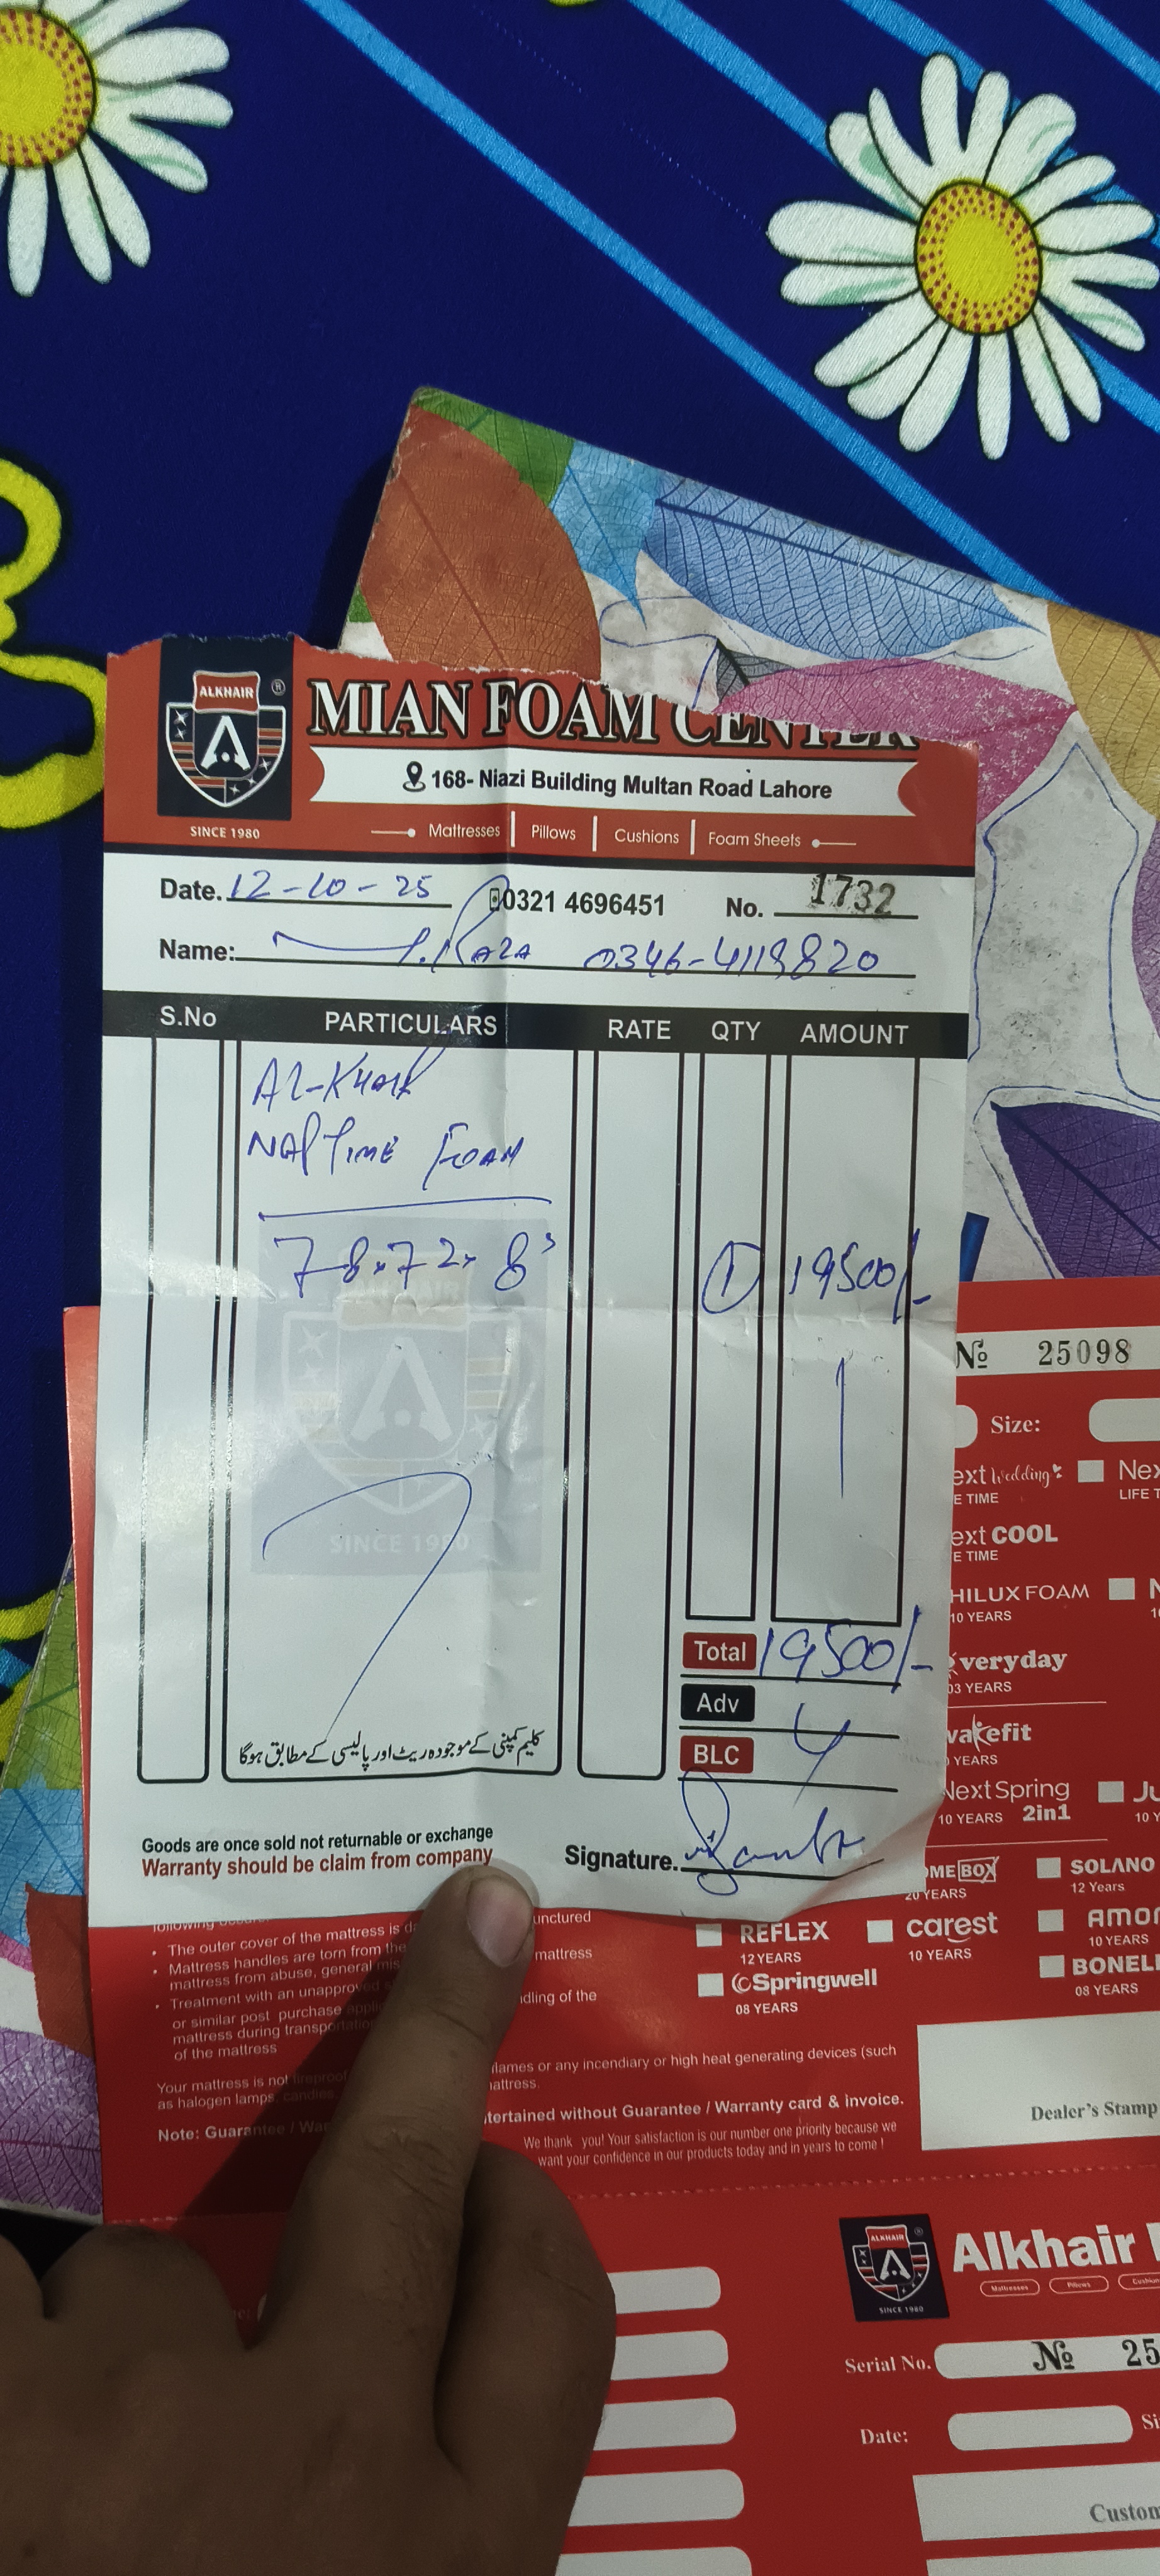 ALKHAIR ®
SINCE 1980
MIAN FOAM CENTER
168- Niazi Building Multan Road Lahore
Mattresses | Pillows | Cushions | Foam Sheets
Date. 12-10-25 0321 4696451 No. 1732
Name: RAZA 0346-4119820
S.No PARTICULARS RATE QTY AMOUNT
AL-KHAIR
NAPTIME FOAM
78x72x8" 1 19500/-
SINCE 1980
Total 19500/-
Adv
BLC
کلیم کمپنی کے موجودہ ریٹ اور پالیسی کے مطابق ہوگا
Goods are once sold not returnable or exchange
Warranty should be claim from company
Signature.
№ 25098
Size:
ext Wedding Nex
E TIME LIFE T
ext COOL
E TIME
HILUX FOAM N
10 YEARS
veryday
03 YEARS
wakefit
YEARS
NextSpring 2in1 Ju
10 YEARS 10 Y
OMEBOX SOLANO
20 YEARS 12 Years
REFLEX carest AMOR
12 YEARS 10 YEARS 10 YEARS
Springwell BONELL
08 YEARS 08 YEARS
following unctured
• The outer cover of the mattress is
• Mattress handles are torn from the mattress
mattress from abuse, general mis
• Treatment with an unapproved dling of the
or similar post purchase
mattress during transportation
of the mattress
Your mattress is not fireproof lames or any incendiary or high heat generating devices (such
as halogen lamps, candles attress.
Note: Guarantee / War tertained without Guarantee / Warranty card & invoice.
We thank you! Your satisfaction is our number one priority because we
want your confidence in our products today and in years to come !
Dealer's Stamp
ALKHAIR ®
SINCE 1980
Alkhair
Mattresses Pillows Cushion
Serial No. № 25
Date: Si
Custom